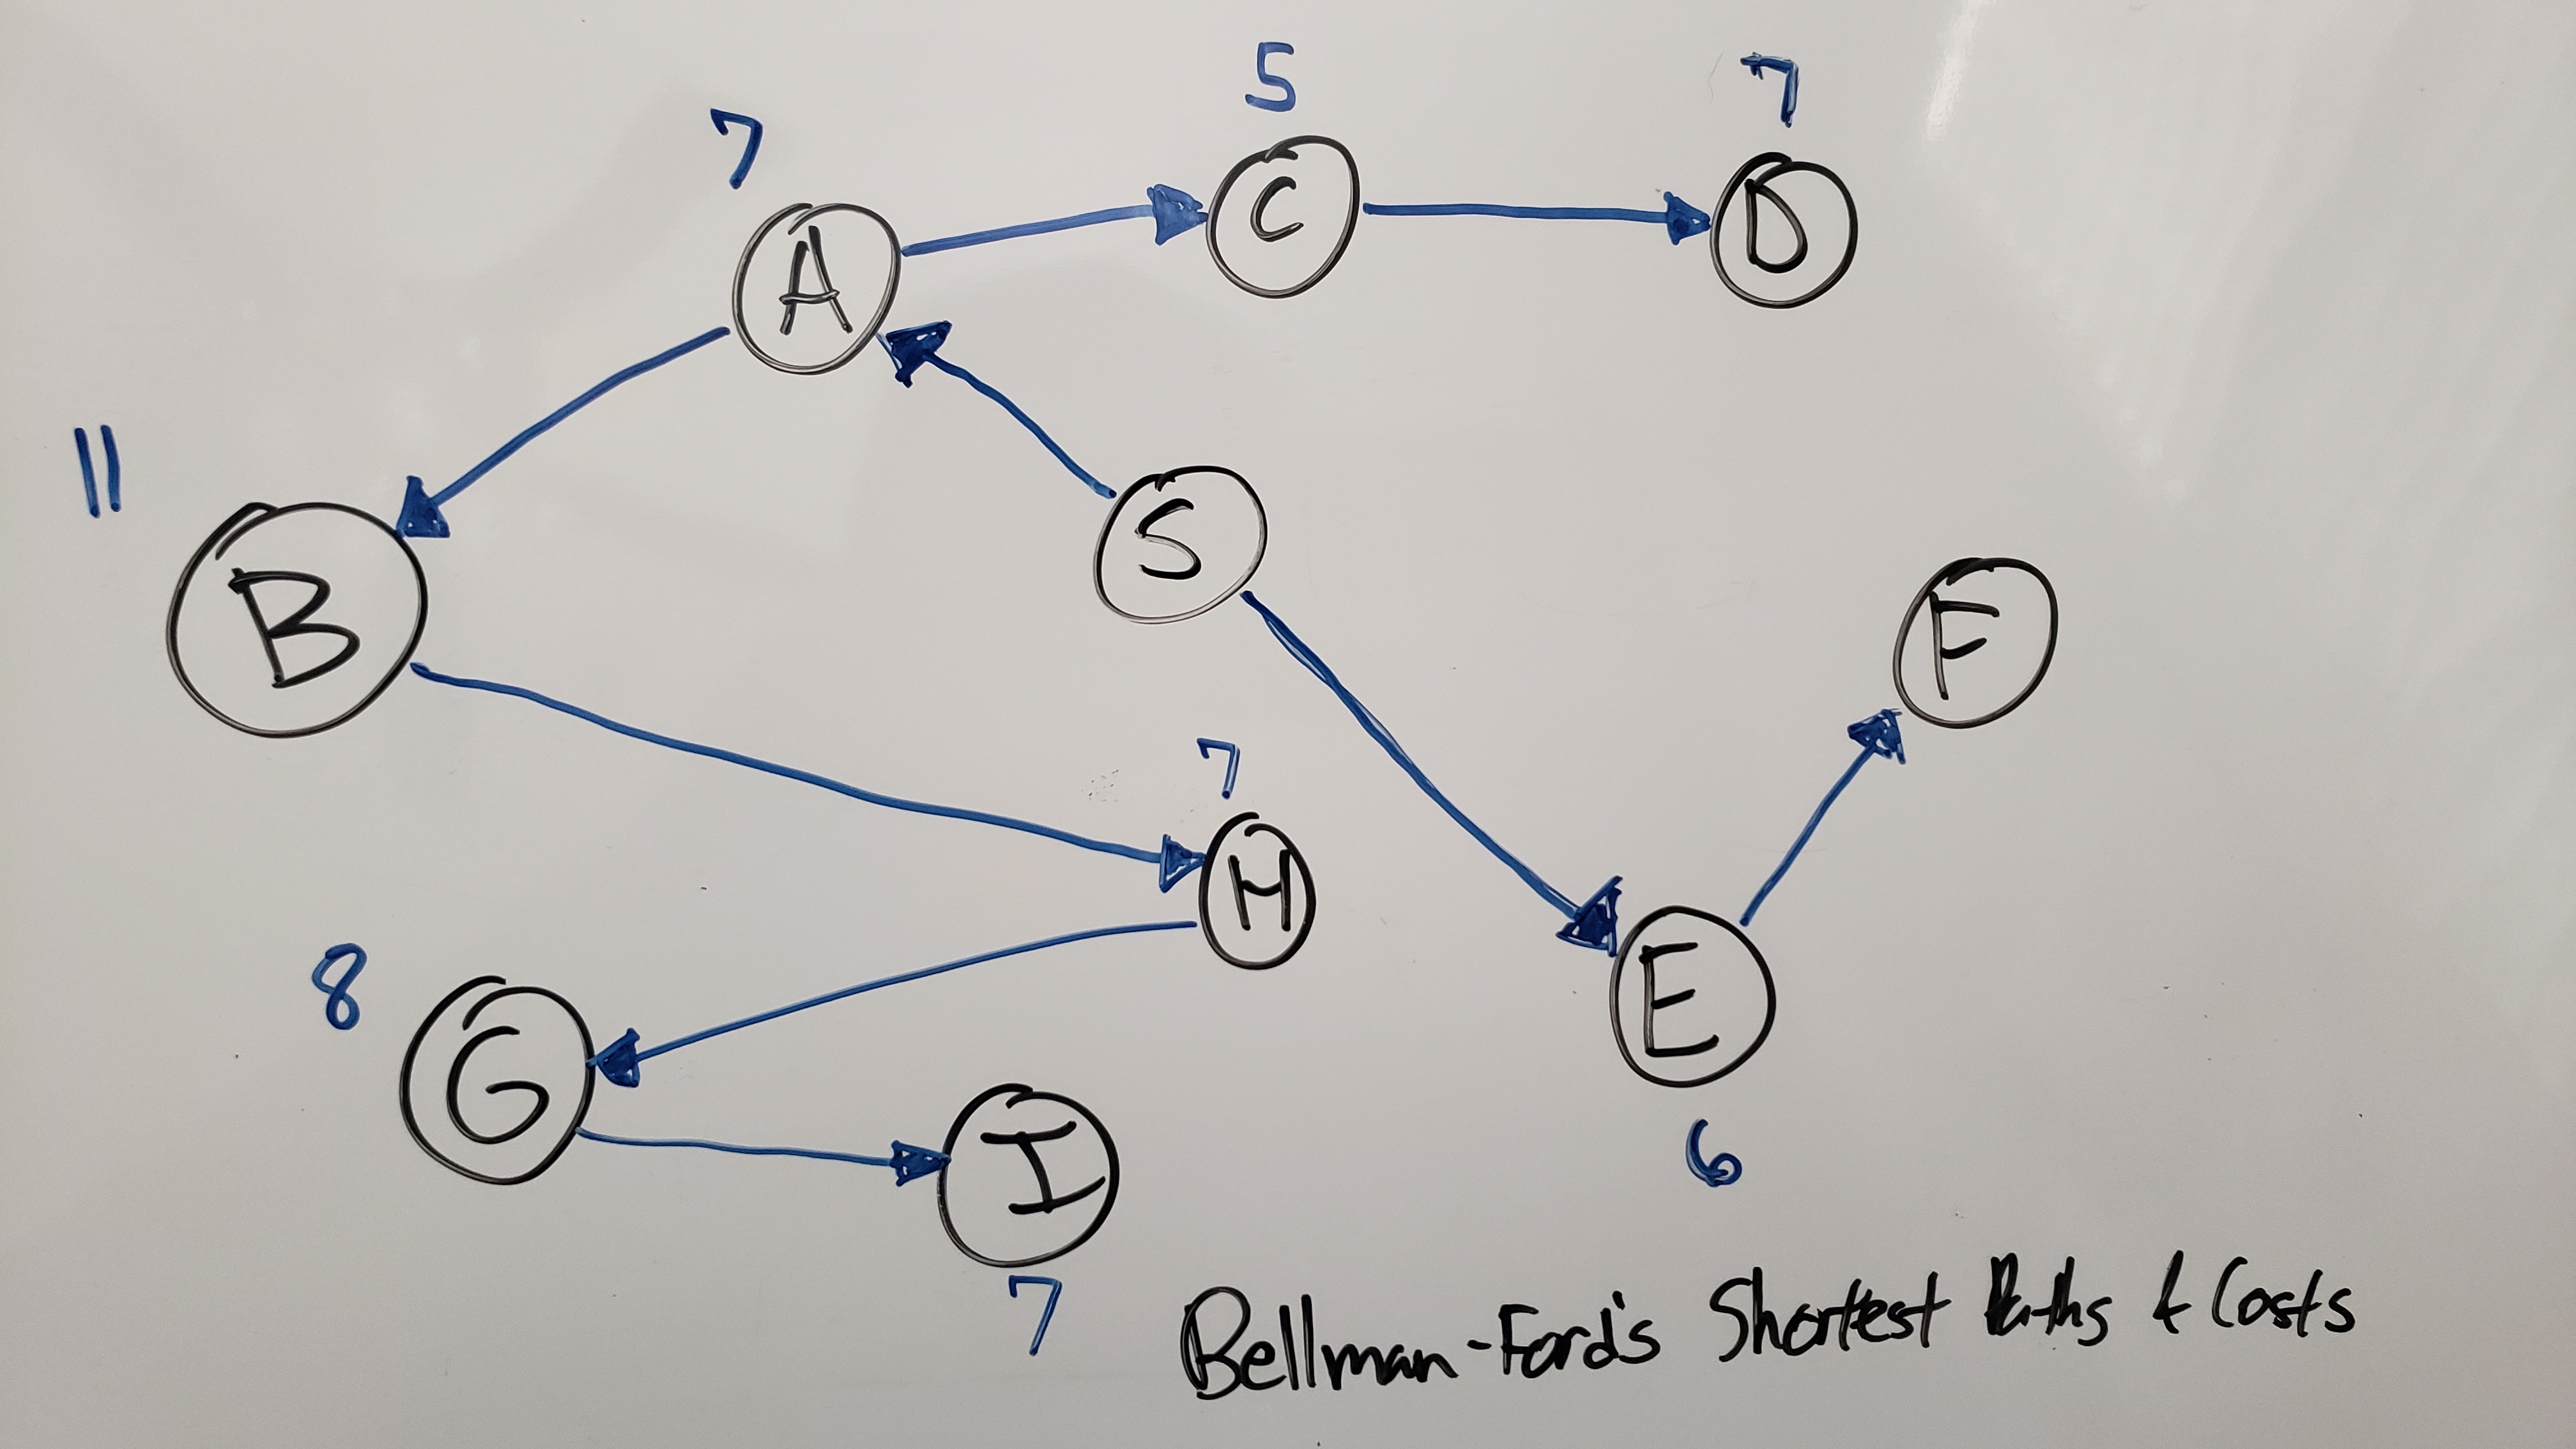 5
7
7
C
D
A
11
S
B
F
7
H
8
E
G
I
6
7
Bellman-Ford's Shortest Paths & Costs